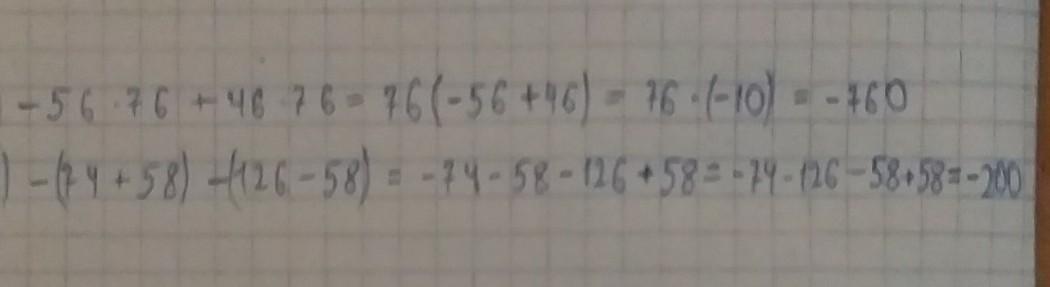 ) -56 · 76 + 46 · 76 = 76(-56 + 46) = 76 · (-10) = -760
) -(74 + 58) -(126 - 58) = -74 - 58 - 126 + 58 = -74 - 126 - 58 + 58 = -200